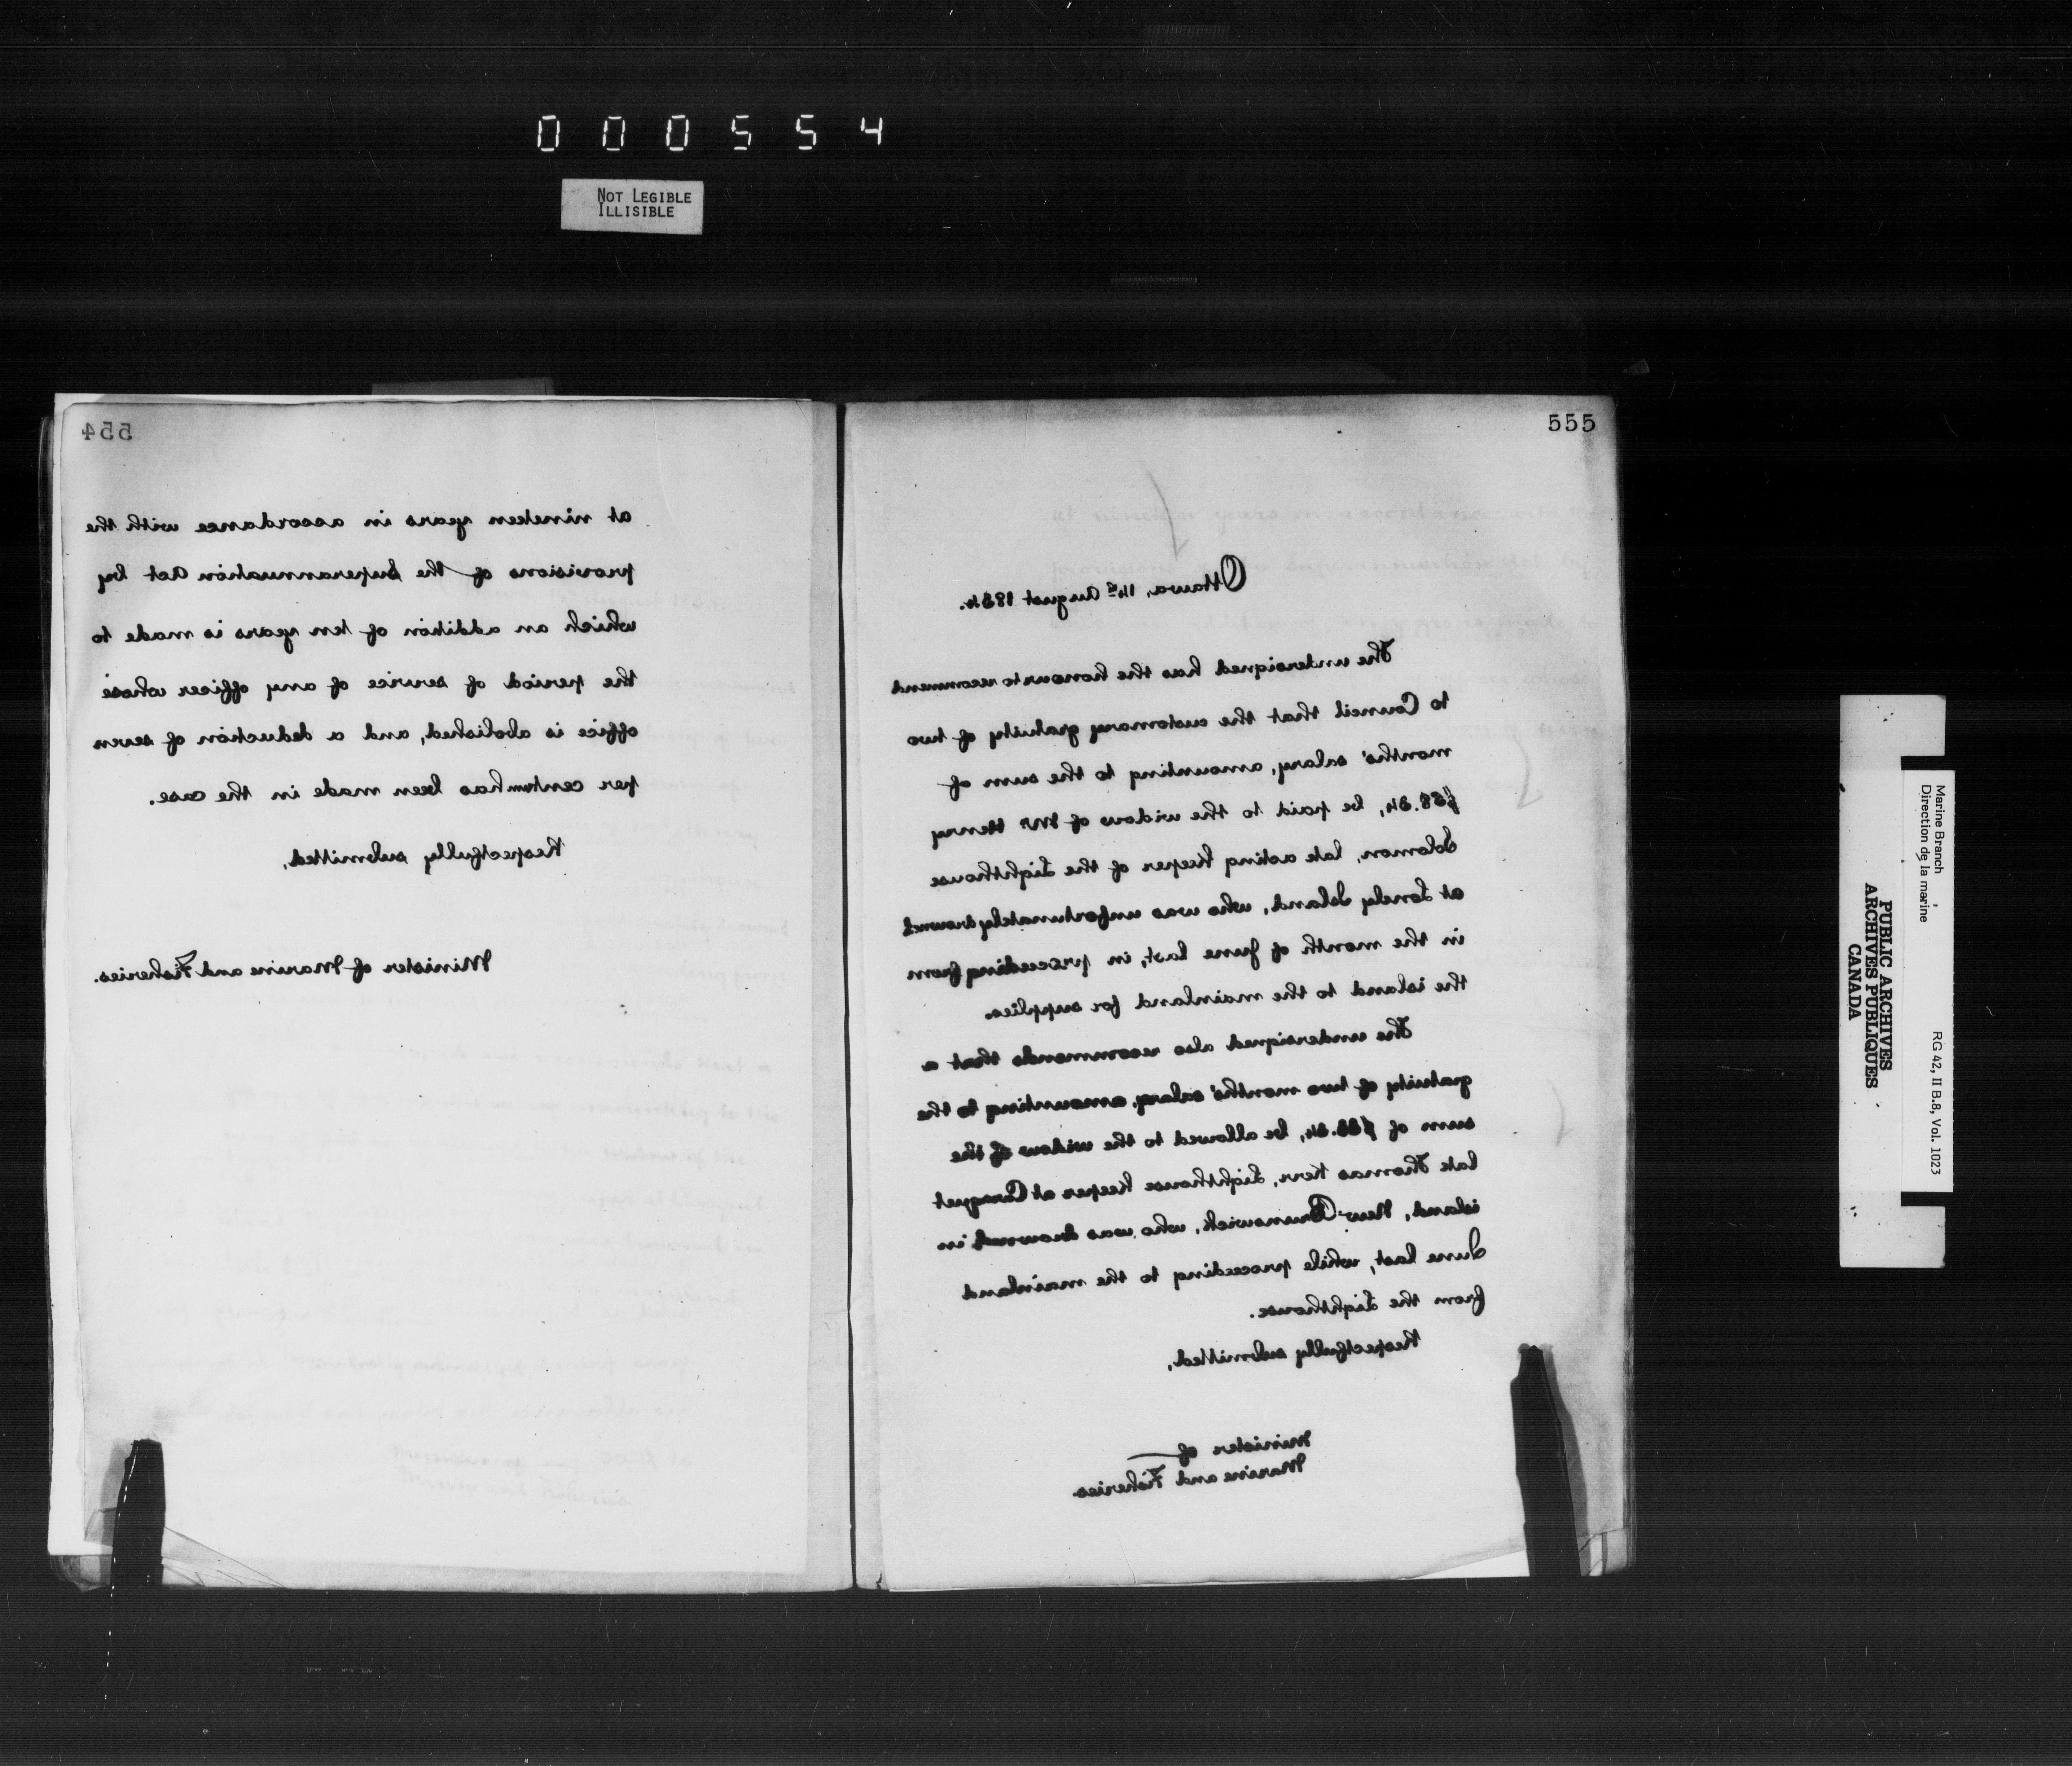 000554
NOT LEGIBLE
ILLISIBLE
554
at nineteen years in accordance with the
provisions of the Superannuation Act by
which an addition of ten years is made to
the period of service of any officer whose
office is abolished, and a deduction of seven
per centum has been made in the case.
Respectfully submitted,
Minister of Marine and Fisheries.
555
Ottawa, 14th August 1884.
The undersigned has the honour to recommend
to Council that the customary gratuity of two
months' salary, amounting to the sum of
be paid to the widow of Mr Henry
Solomon, late acting Keeper of the Lighthouse
at Lonely Island, who was unfortunately drowned
in the month of June last, in proceeding from
the island to the mainland for supplies.
The undersigned also recommends that a
gratuity of two months' salary, amounting to the
sum of be allowed to the widow of the
late Thomas Kerr, Lighthouse Keeper at Caraquet
island, New Brunswick, who was drowned in
June last, while proceeding to the mainland
from the Lighthouse.
Respectfully submitted,
Minister of
Marine and Fisheries
Marine Branch
Direction de la marine
RG 42, II B.8, Vol. 1023
PUBLIC ARCHIVES
ARCHIVES PUBLIQUES
CANADA